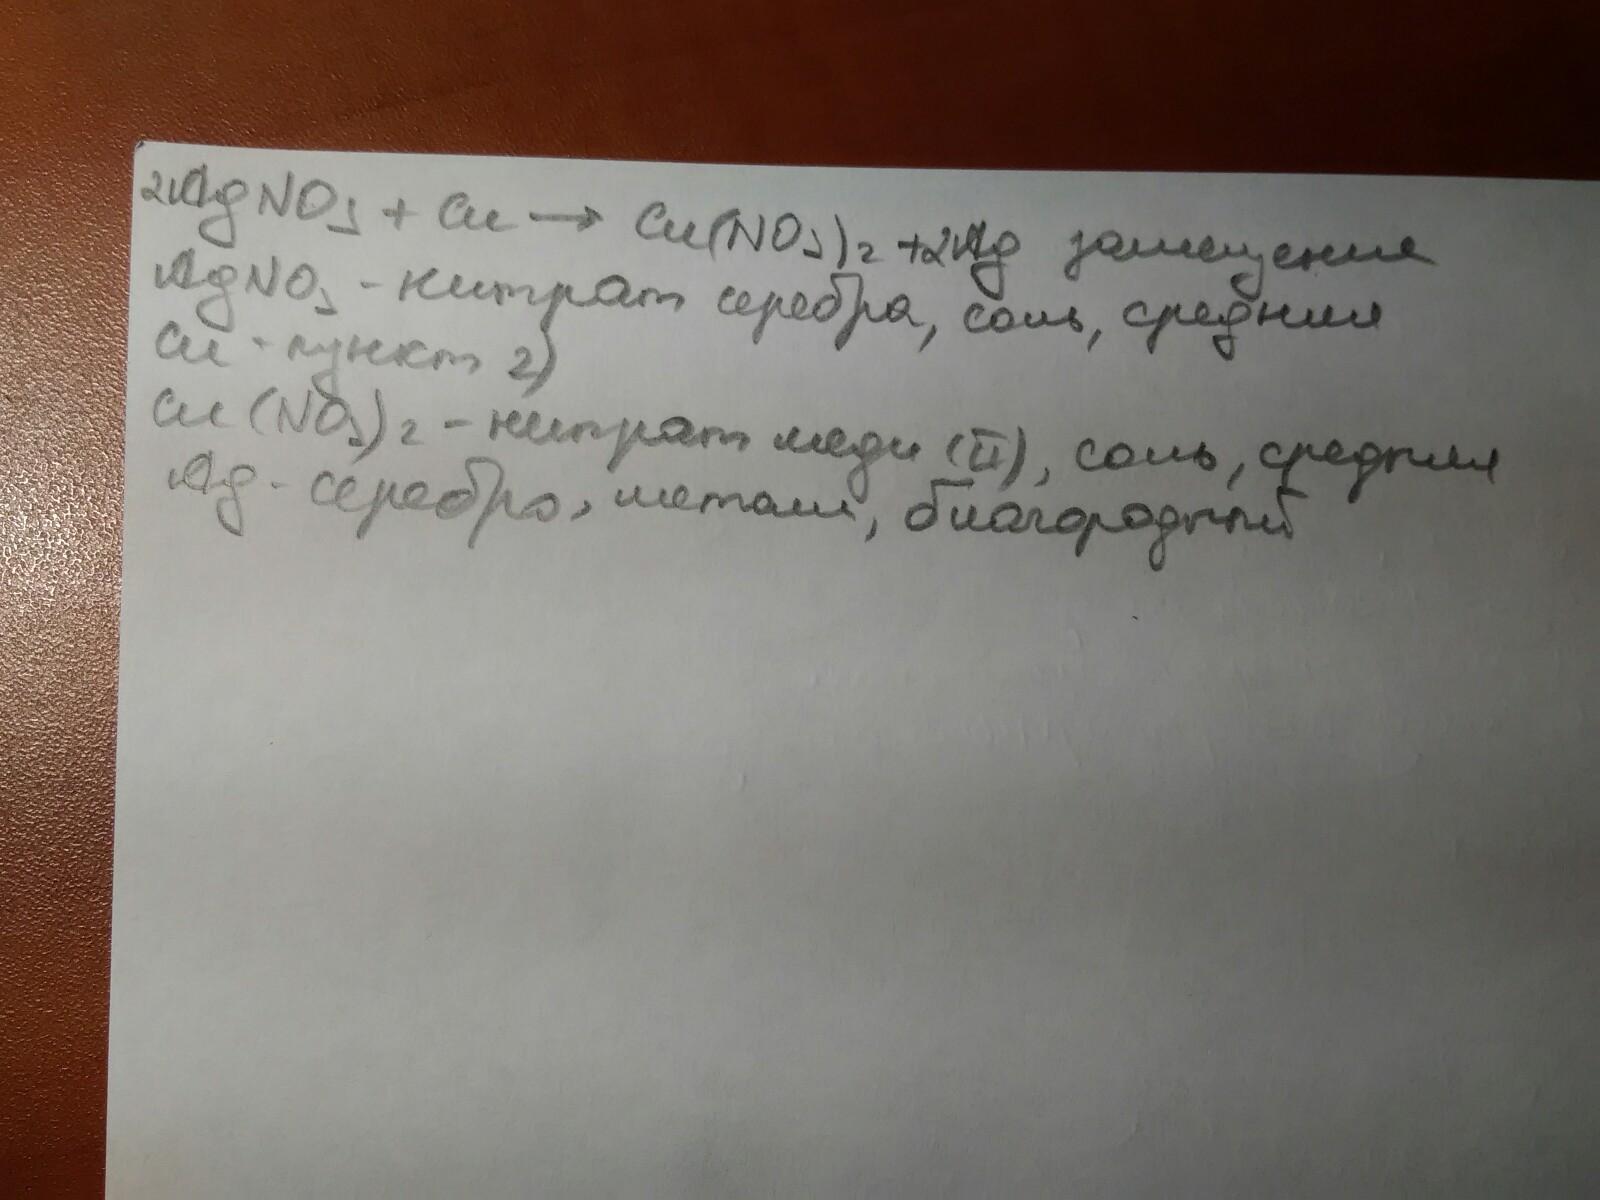 2AgNO₃ + Cu → Cu(NO₃)₂ + 2Ag замещения
AgNO₃ - нитрат серебра, соль, средняя
Cu - пункт 2)
Cu(NO₃)₂ - нитрат меди (II), соль, средняя
Ag - серебро, металл, благородный